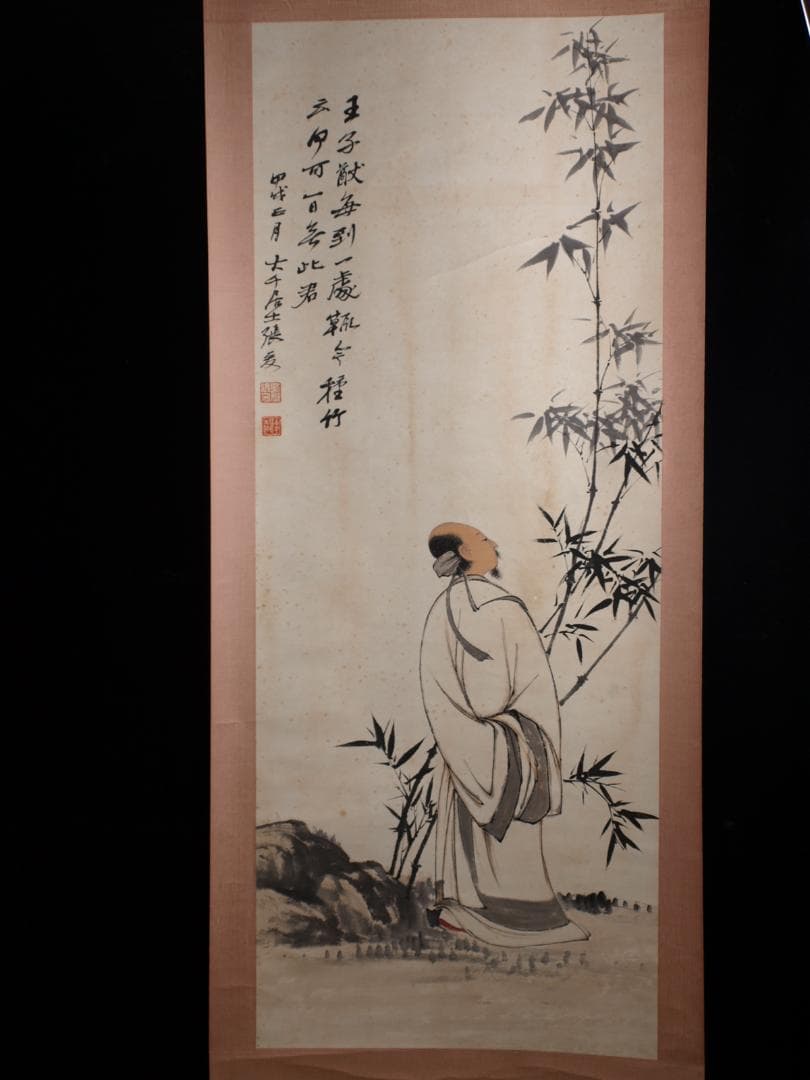 王子猷每到一處輒令種竹
云何可一日無此君
甲戌正月大千居士張爰